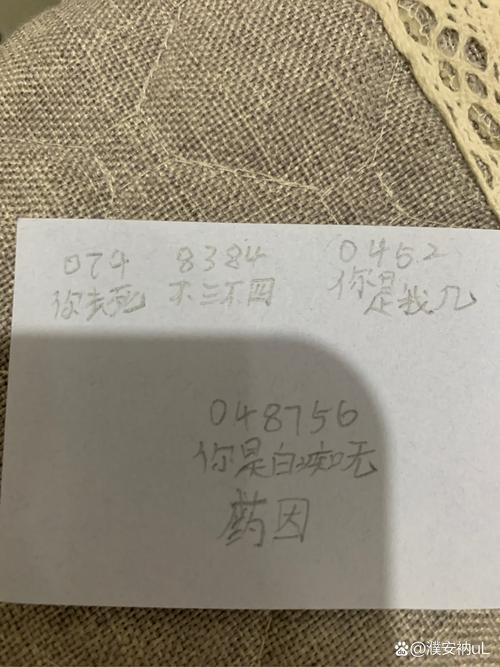 074 8384 0452
你去死 不三不四 你是我儿
048756
你是白痴无
药因
@濮安衲uL